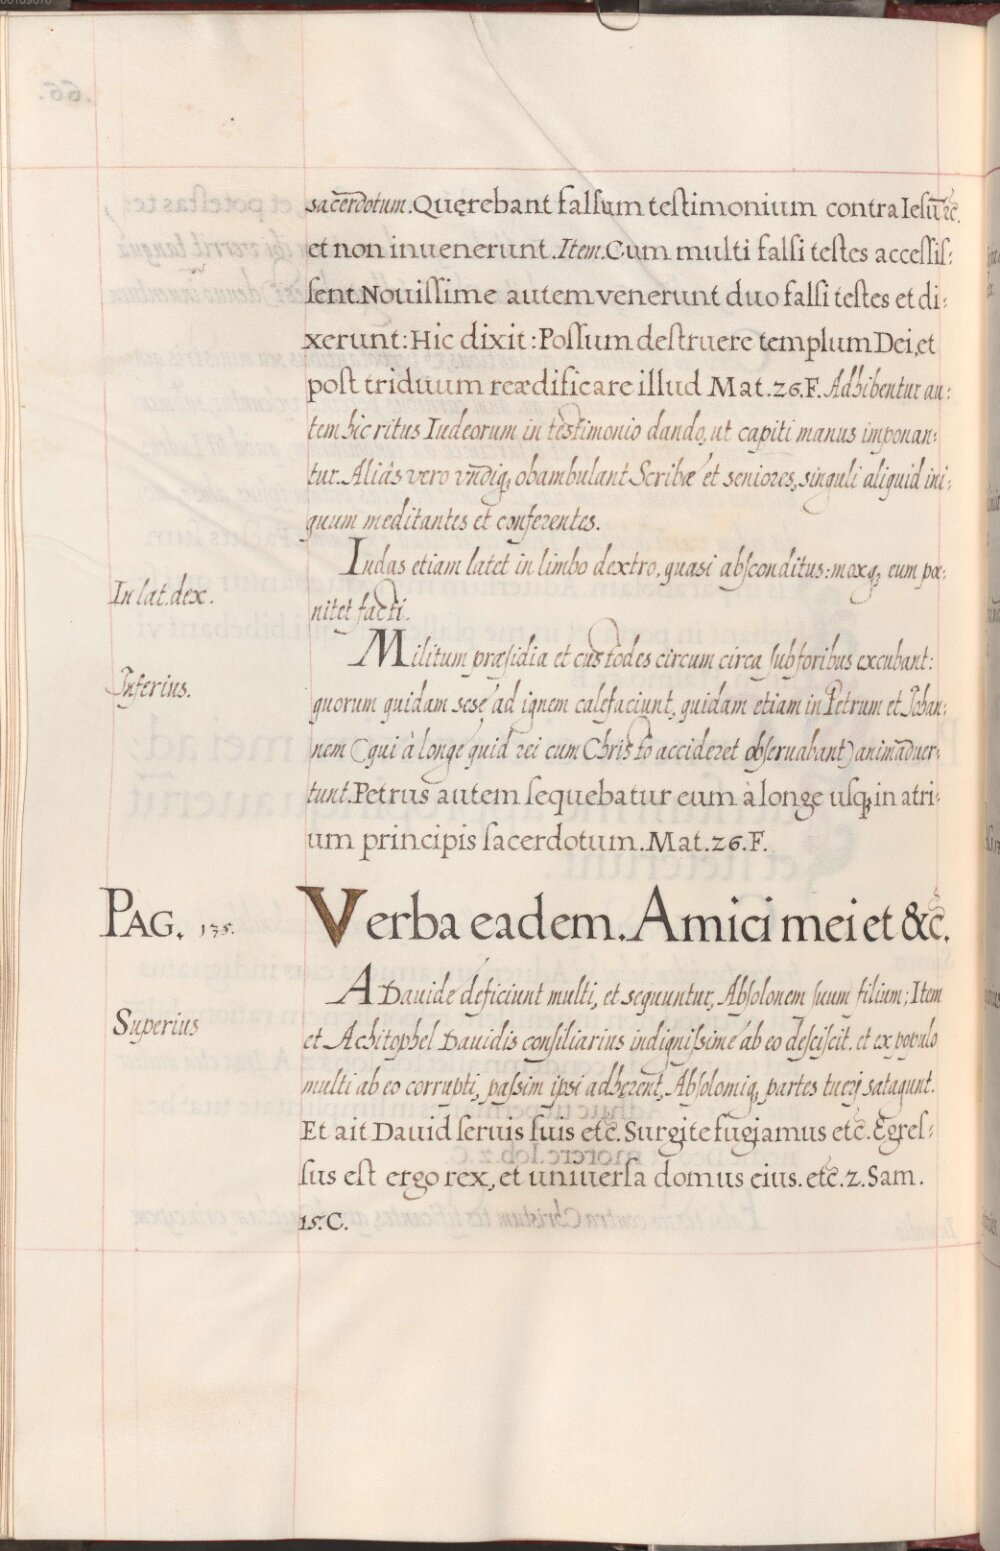 sacerdotum. Quęrebant falsum testimonium contra Iesū ꝛc̃.
et non inuenerunt. Item. Cum multi falsi testes accessis:
sent. Nouissime autem venerunt duo falsi testes et di:
xerunt: Hic dixit: Possum destruere templum Dei, et
post triduum reædificare illud Mat. 26. F. Adhibentur au:
tem hic ritus Iudeorum in testimonio dando, ut capiti manus imponan:
tur. Aliâs vero vndiq, obambulant Scribæ et seniores, singuli aliquid ini:
quum meditantes et conferentes.
In lat. dex.
Iudas etiam latet in limbo dextro, quasi absconditus: moxq, eum pœ:
nitet facti.
Inferius.
Militum præsidia et custodes circum circa sub foribus excubant:
quorum quidam sese ad ignem calefaciunt, quidam etiam in Petrum et Johan:
nem (qui à longe quid rei cum Christo accideret obseruabant) animaduer:
tunt. Petrus autem sequebatur eum à longe usq, in atri:
um principis sacerdotum. Mat. 26. F.
PAG. 135.
Verba eadem. Amici mei et &c̃.
Superius
A Dauide deficiunt multi, et sequuntur, Absolonem suum filium; Item
et Achitophel Dauidis consiliarius indignissime ab eo desciscit. et ex populo
multi ab eo corrupti, passim ipsi adhęrent, Absolomiq, partes tuerj satagunt.
Et ait Dauid seruis suis etc̃. Surgite fugiamus etc̃. Egres:
sus est ergo rex, et uniuersa domus eius. etc̃. 2. Sam.
15. C.